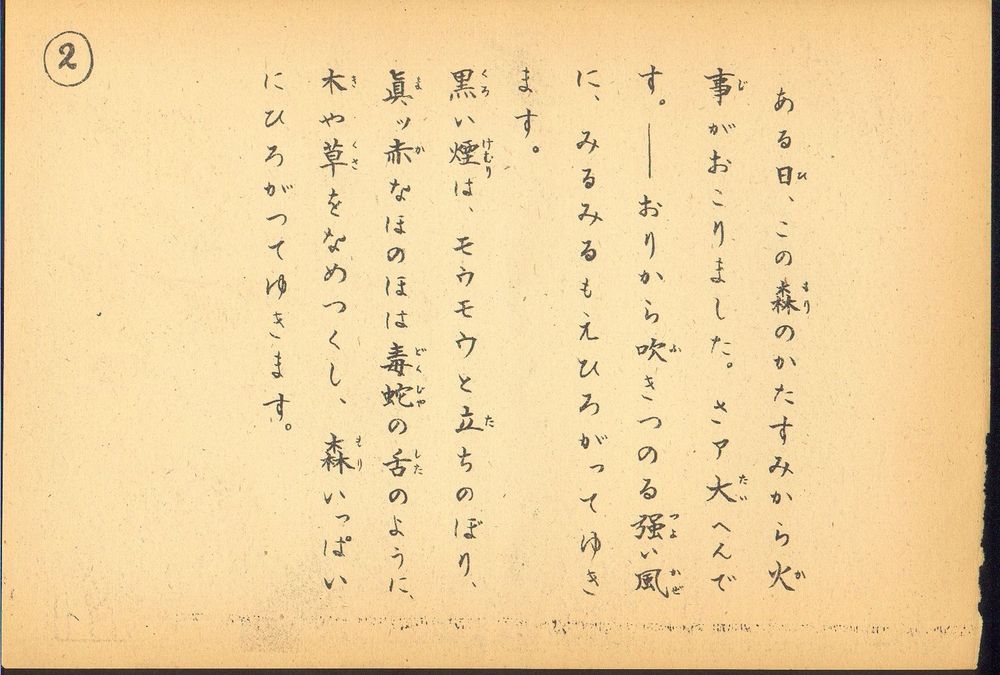 2
ある日、この森のかたすみから火
事がおこりました。さア大へんで
す。――おりから吹きつのる強い風
に、みるみるもえひろがってゆき
ます。
黒い煙は、モウモウと立ちのぼり、
眞ッ赤なほのほは毒蛇の舌のように、
木や草をなめつくし、森いっぱい
にひろがつてゆきます。